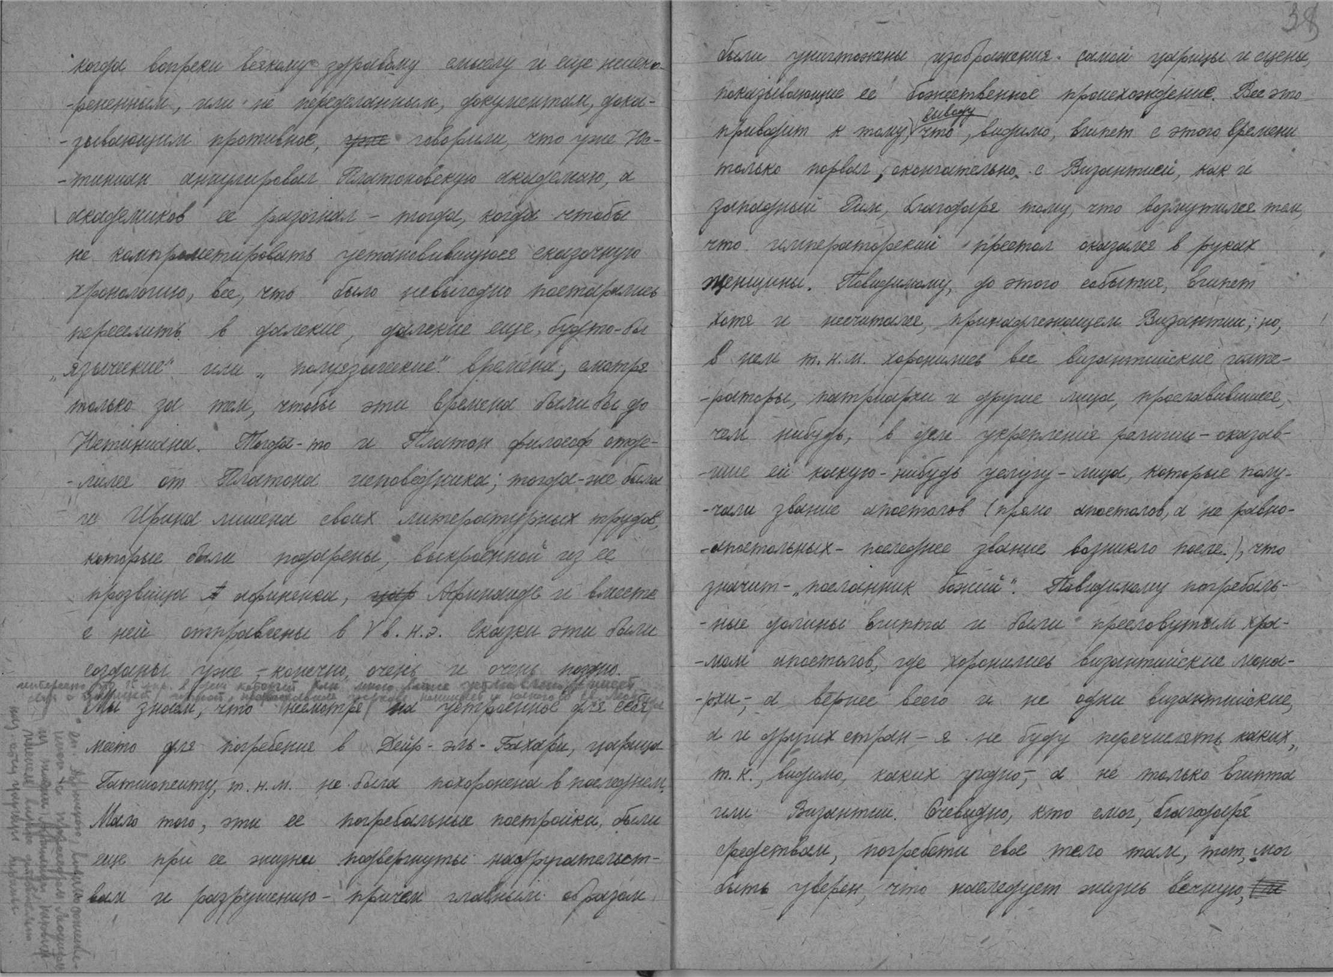 когда вопреки всякому здравому смыслу и еще неиско-
-рененным, или не переделанным, документам, дока-
-зывающим противное, уже говорили, что уже Юс-
-тиниан аннулировал Платоновскую академию, а
академиков ее разогнал – тогда, когда чтобы
не компрометировать установившуюся сказочную
хронологию, все, что было невыгодно постарались
переслить в далекие, далекие еще, будто-бы
„языческие" или „полуязыческие" времена, смотря
только за тем, чтобы эти времена были бы до
Юстиниана. Тогда-то и Платон философ отде-
-лился от Платона исповедника; тогда-же была
и Ирина лишена своих литературных трудов,
которые были подарены, выкроенной из ее
прозвища афинянка, Афинаиде и вместе
с ней отправлены в V в. н. э. Сказки эти были
созданы уже – конечно, очень и очень поздно.
Мы знаем, что несмотря на устроенное для себя
место для погребения в Дейр-эль-Бахари, царица
Гатшопситу, т.н.м. не была похоронена в последнем.
Мало того, эти ее погребальные постройки, были
еще при ее жизни подвергнуты надругательст-
вам и разрушению – причем главным образом
38
были уничтожены изображения самой царицы и сцены,
показывающие ее божественное происхождение. Все это
приводит к тому выводу, что, видимо, Египет с этого времени
только порвал, окончательно, с Византией, как и
западный Рим, благодаря тому, что возмутился тем,
что императорский престол оказался в руках
женщины. Повидимому, до этого события, Египет
хотя и не считался, принадлежащем Византии; но,
в нем т.н.м. хоронились все византийские импе-
-раторы, патриархи и другие лица, прославившиеся,
чем нибудь, в деле укрепление религии – оказав-
-шие ей какую-нибудь услугу – лица, которые полу-
-чали звание апостолов (прямо апостолов, а не равно-
-апостольных – последнее звание возникло после.), что
значит – „посланник божий". Повидимому погребаль-
-ные долины Египта и были пресловутым хра-
-мом апостолов, где хоронились византийские монар-
-хи, – а вернее всего и не одни византийские,
а и других стран – я не буду перечислять каких,
т.к., видимо, каких угодно, – а не только Египта
или Византии. Очевидно, кто смог, благодаря
средствам, погребсти свое тело там, тот, мог
быть уверен, что наследует жизнь вечную,